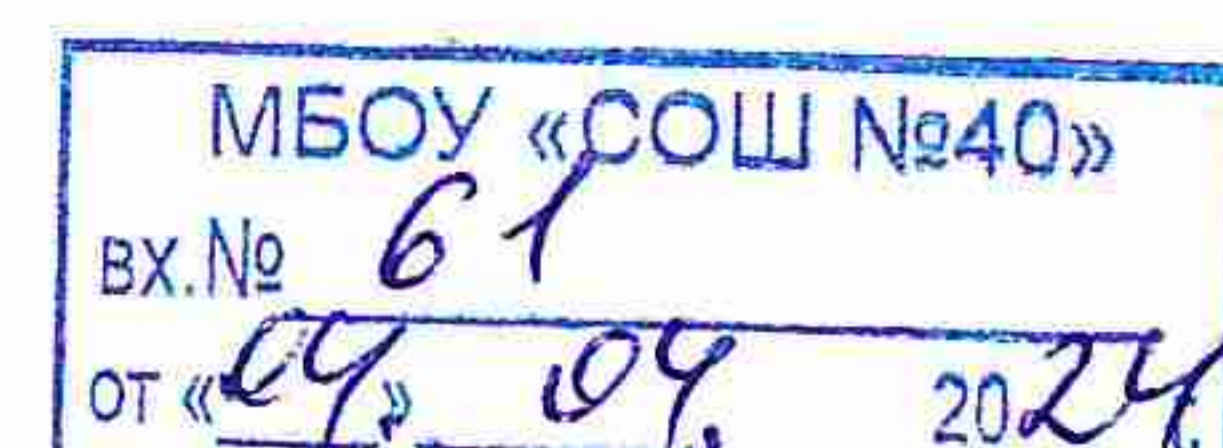 МБОУ «СОШ №40»
вх.№ 61
от «04» 04. 2024